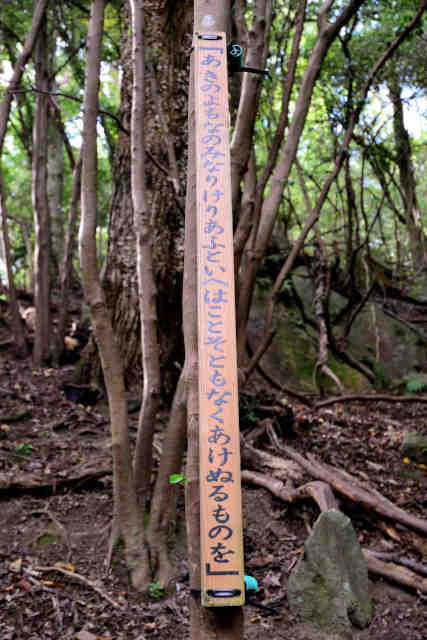 『あきのよもなのみなりけりあふといへはことそともなくあけぬるものを』